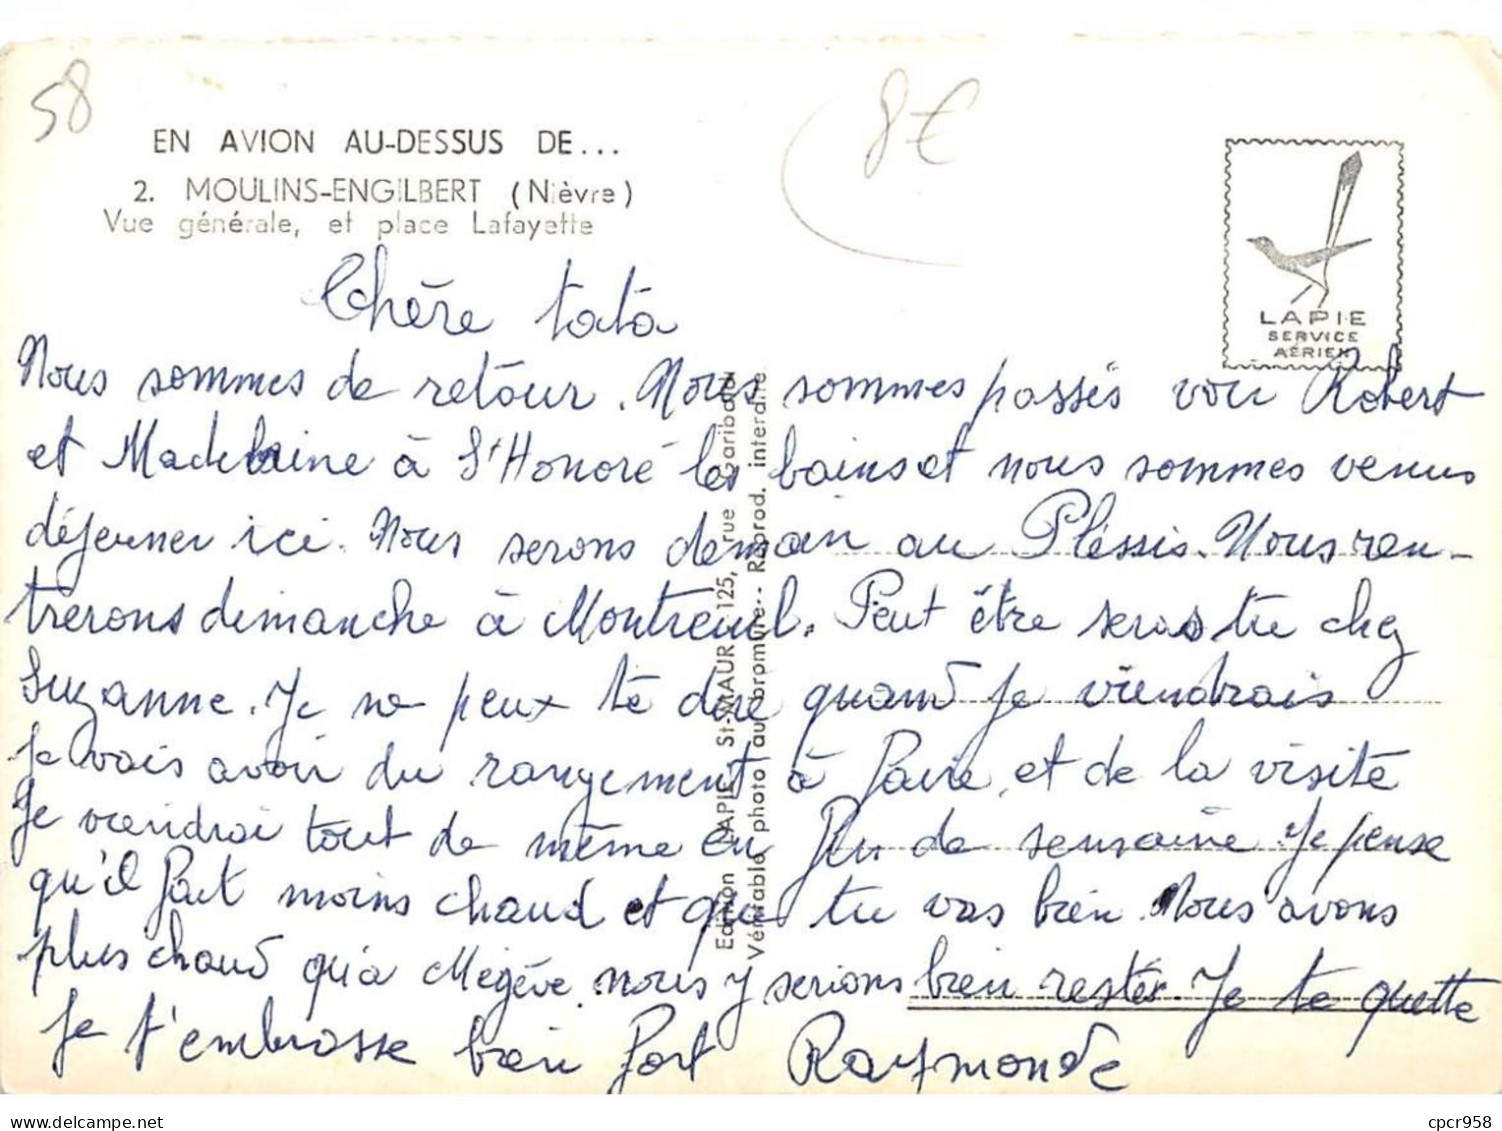 58
8€
EN AVION AU-DESSUS DE...
2. MOULINS-ENGILBERT (Nièvre)
Vue générale, et place Lafayette
LAPIE
SERVICE
AÉRIEN
Chère tata
Nous sommes de retour. Nous sommes passés voir Robert
et Madelaine à St Honoré les bains et nous sommes venus
déjeuner ici. Nous serons demain au Plessis. Nous ren-
trerons dimanche à Montreuil. Peut être seras tu chez
Suzanne. Je ne peux te dire quand je viendrais
Je vais avoir du rangement à faire, et de la visite
Je viendrai tout de même en fin de semaine. Je pense
qu'il fait moins chaud et que tu vas bien. Nous avons
plus chaud qu'a Megève. nous y serions bien rester. Je te quitte
Je t'embrasse bien fort Raymonde
Edition LAPIE, St-MAUR 125, rue Garibaldi
Véritable photo au bromure - Reprod. interdite
cpcr958